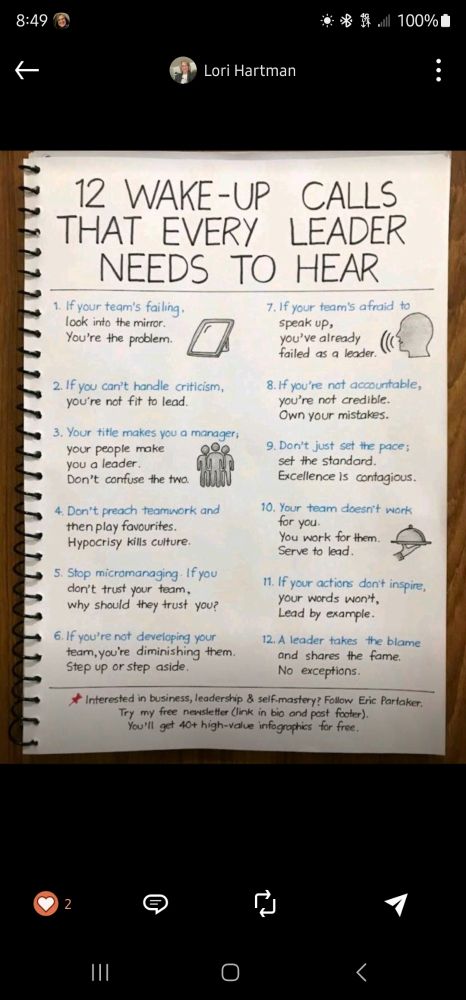 8:49
100%
Lori Hartman
12 WAKE-UP CALLS
THAT EVERY LEADER
NEEDS TO HEAR
1. If your team's failing,
look into the mirror.
You're the problem.
2. If you can't handle criticism,
you're not fit to lead.
3. Your title makes you a manager;
your people make
you a leader.
Don't confuse the two.
4. Don't preach teamwork and
then play favourites.
Hypocrisy kills culture.
5. Stop micromanaging. If you
don't trust your team,
why should they trust you?
6. If you're not developing your
team, you're diminishing them.
Step up or step aside.
7. If your team's afraid to
speak up,
you've already
failed as a leader.
8. If you're not accountable,
you're not credible.
Own your mistakes.
9. Don't just set the pace;
set the standard.
Excellence is contagious.
10. Your team doesn't work
for you.
You work for them.
Serve to lead.
11. If your actions don't inspire,
your words won't,
Lead by example.
12. A leader takes the blame
and shares the fame.
No exceptions.
Interested in business, leadership & self-mastery? Follow Eric Partaker.
Try my free newsletter (link in bio and post footer).
You'll get 40+ high-value infographics for free.
2